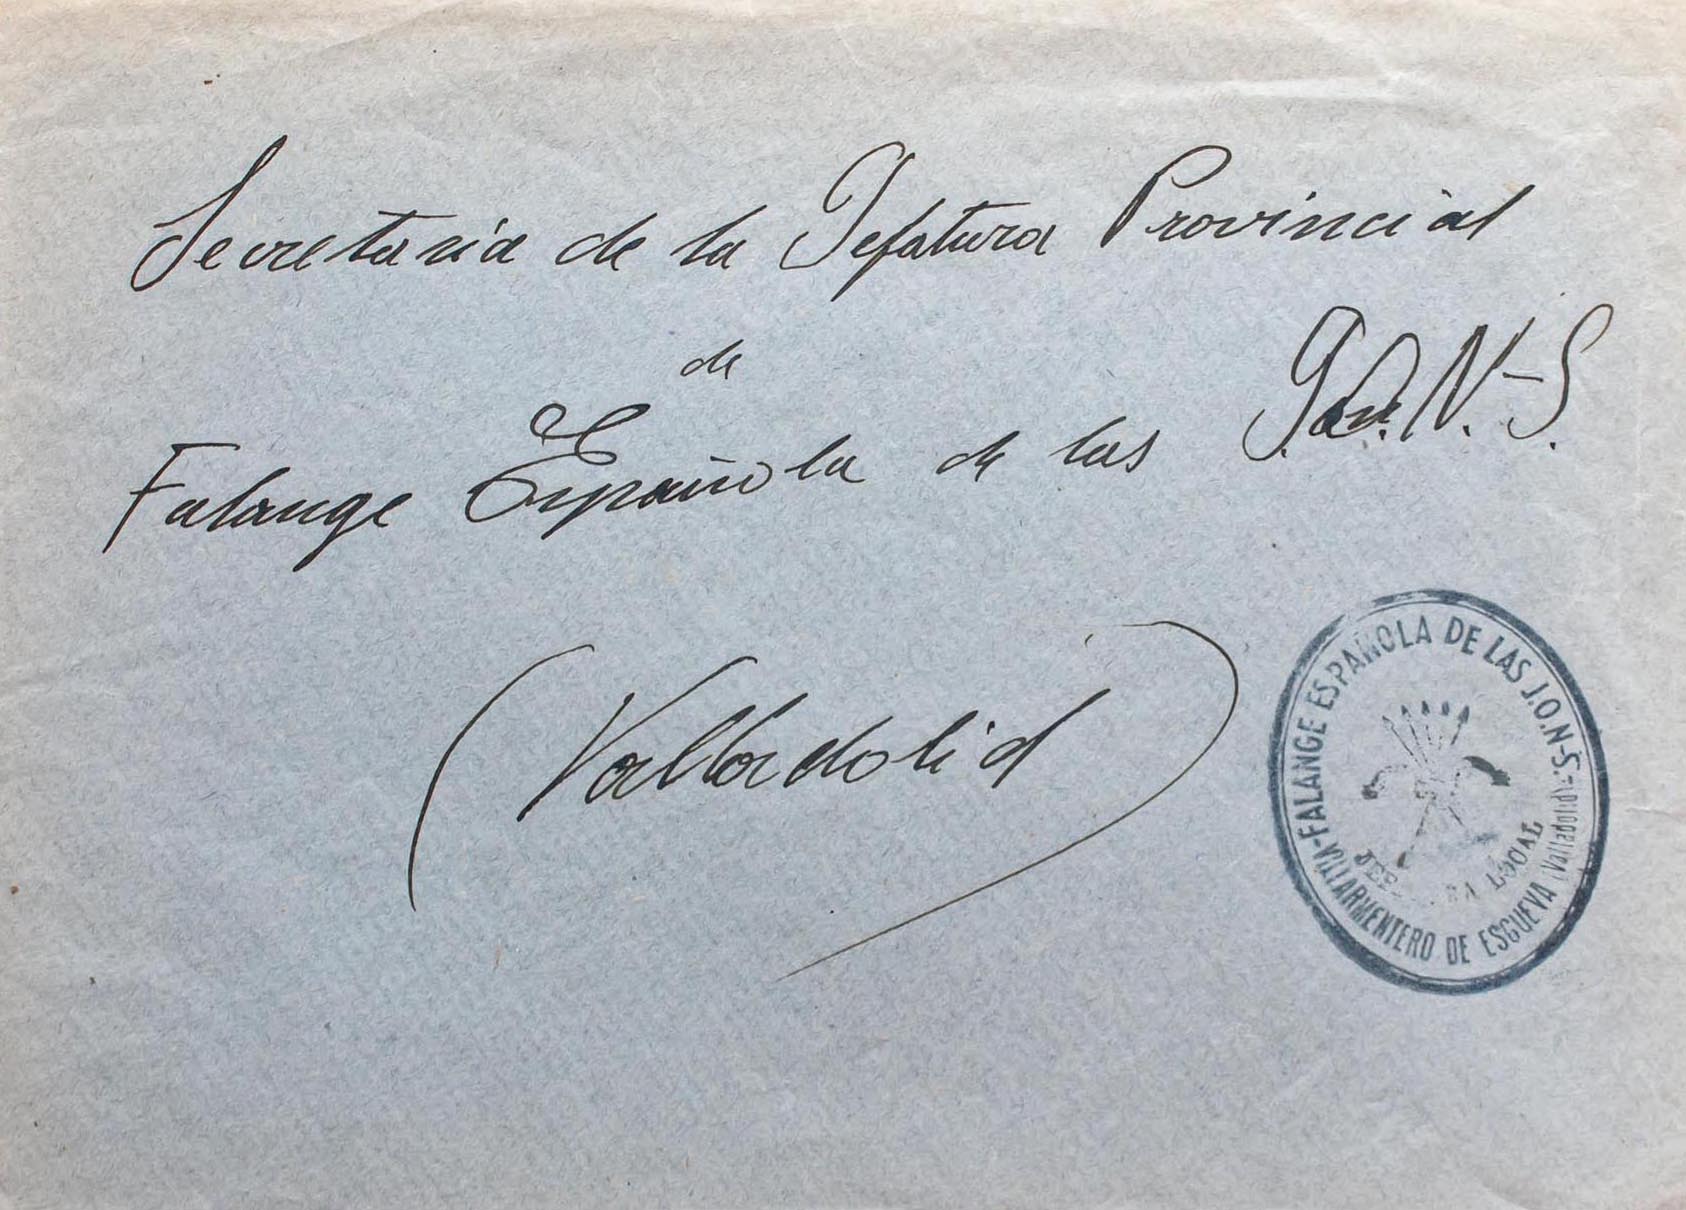 Secretaria de la Jefatura Provincial
de
Falange Española de las J.O.N.-S.
(Valladolid)
FALANGE ESPAÑOLA DE LAS J.O.N-S.-
VILLARMENTERO DE ESGUEVA (Valladolid)-
LOCAL